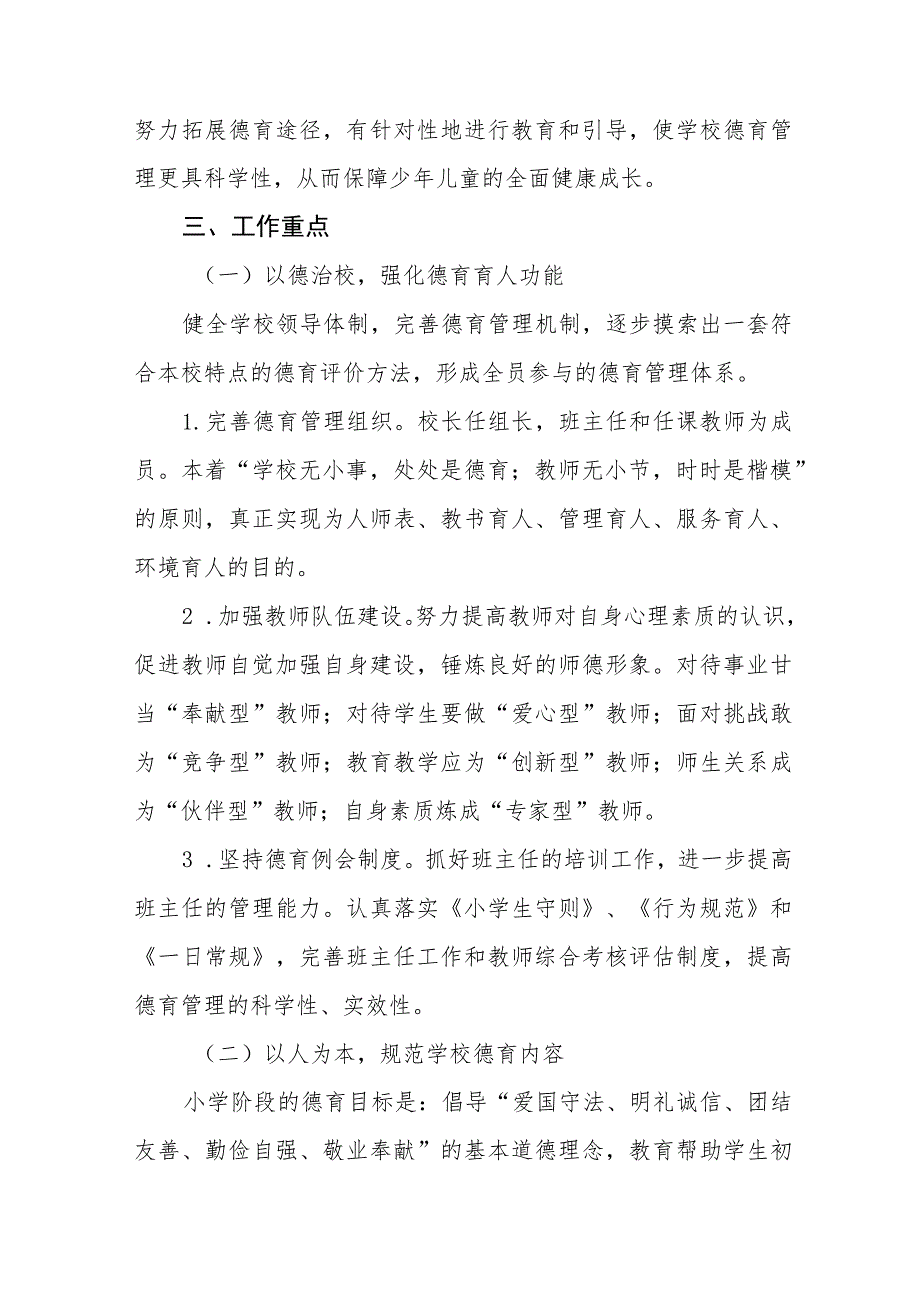 努力拓展德育途径，有针对性地进行教育和引导，使学校德育管
理更具科学性，从而保障少年儿童的全面健康成长。
三、工作重点
（一）以德治校，强化德育育人功能
健全学校领导体制，完善德育管理机制，逐步摸索出一套符
合本校特点的德育评价方法，形成全员参与的德育管理体系。
1.完善德育管理组织。校长任组长，班主任和任课教师为成
员。本着“学校无小事，处处是德育；教师无小节，时时是楷模”
的原则，真正实现为人师表、教书育人、管理育人、服务育人、
环境育人的目的。
2 .加强教师队伍建设。努力提高教师对自身心理素质的认识，
促进教师自觉加强自身建设，锤炼良好的师德形象。对待事业甘
当“奉献型”教师；对待学生要做“爱心型”教师；面对挑战敢
为“竞争型”教师；教育教学应为“创新型”教师；师生关系成
为“伙伴型”教师；自身素质炼成“专家型”教师。
3 .坚持德育例会制度。抓好班主任的培训工作，进一步提高
班主任的管理能力。认真落实《小学生守则》、《行为规范》和
《一日常规》，完善班主任工作和教师综合考核评估制度，提高
德育管理的科学性、实效性。
（二）以人为本，规范学校德育内容
小学阶段的德育目标是：倡导“爱国守法、明礼诚信、团结
友善、勤俭自强、敬业奉献”的基本道德理念，教育帮助学生初